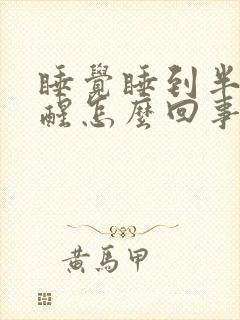 睡覺睡到半
醒怎麼回事
黃馬甲